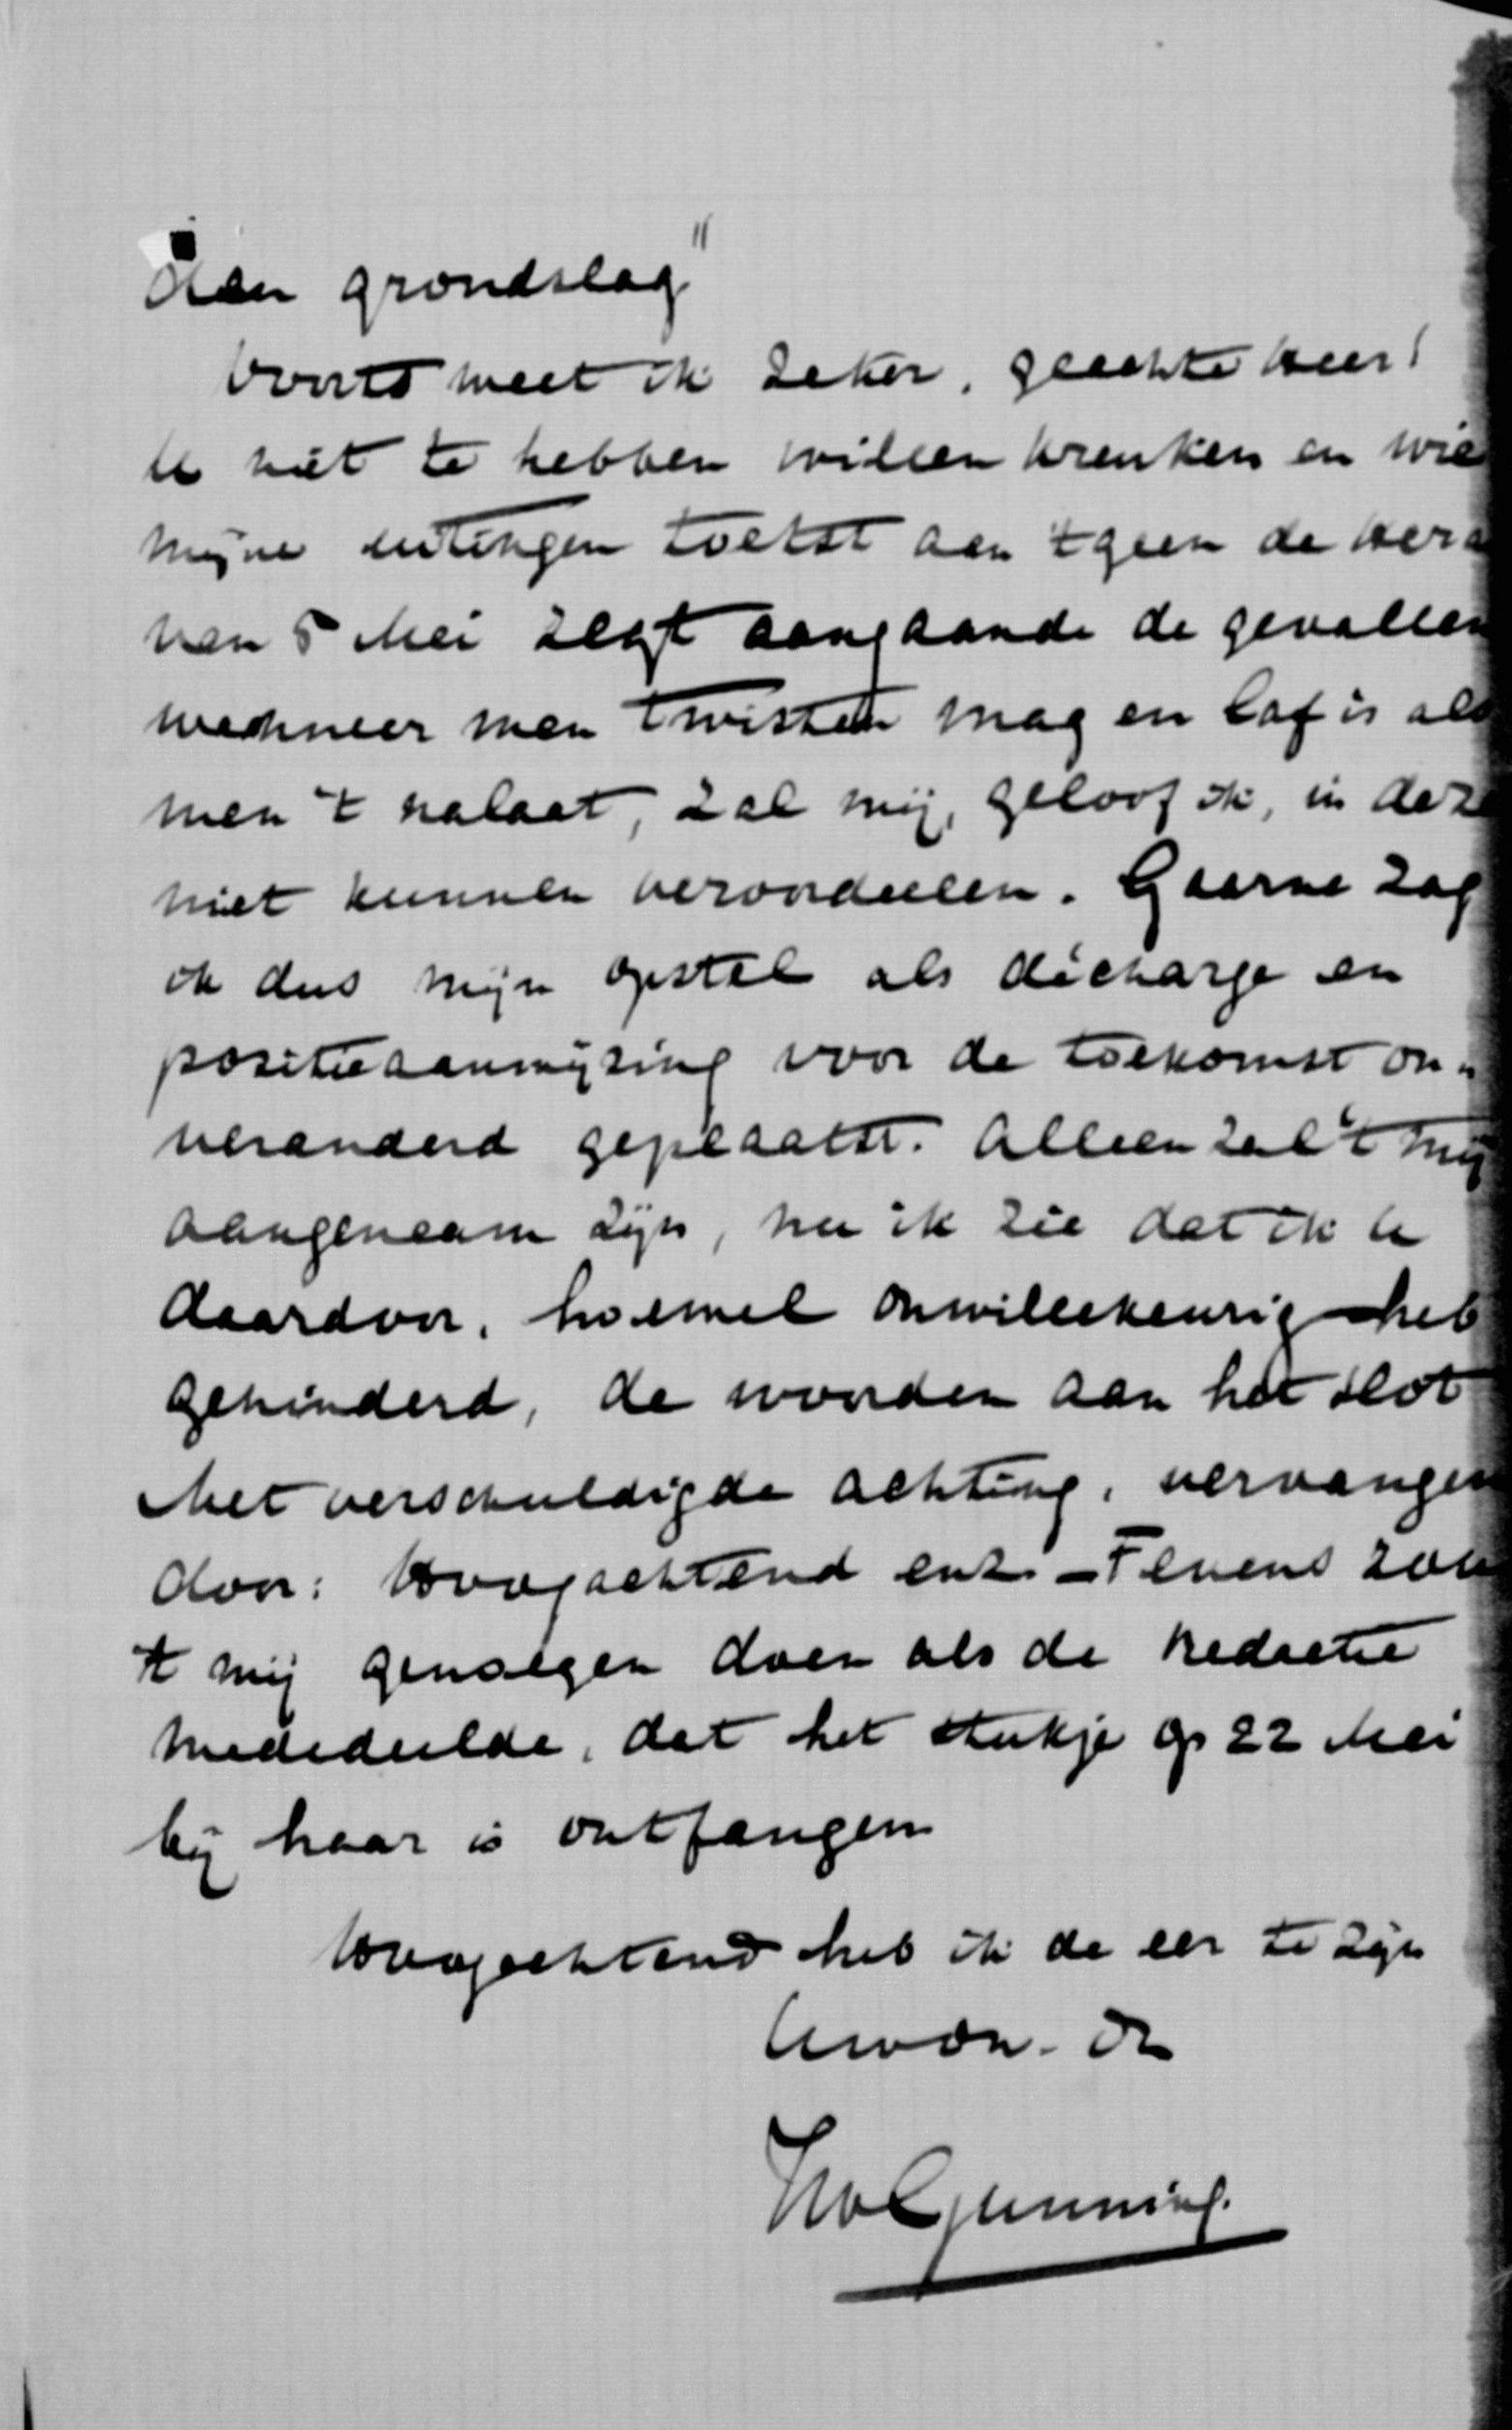 den grondslag"
Voorts weet ik zeker, geachte Heer!
U niet te hebben willen krenken en wie
mijne uitingen toetst aan 't geen de Hera
van 5 Mei zegt aangaande de gevallen
wanneer men twisten mag en laf is als
men 't nalaat, zal mij, geloof ik, in deze
niet kunnen veroordeelen. Gaarne zag
ik dus mijn opstel als décharge en
positieaanwijzing voor de toekomst on„
veranderd geplaatst. Alleen zal 't mij
aangenaam zijn, nu ik zie dat ik U
daardoor, hoewel onwillekeurig heb
gehinderd, de woorden aan het slot
Met verschuldigde achting, vervangen
door: Hoogachtend enz. - Tevens zou
't mij genoegen doen als de Redactie
mededeelde, dat het stukje op 22 Mei
bij haar is ontfangen
Hoogachtend heb ik de eer te zijn
Uwdn. Dr
Gunning.